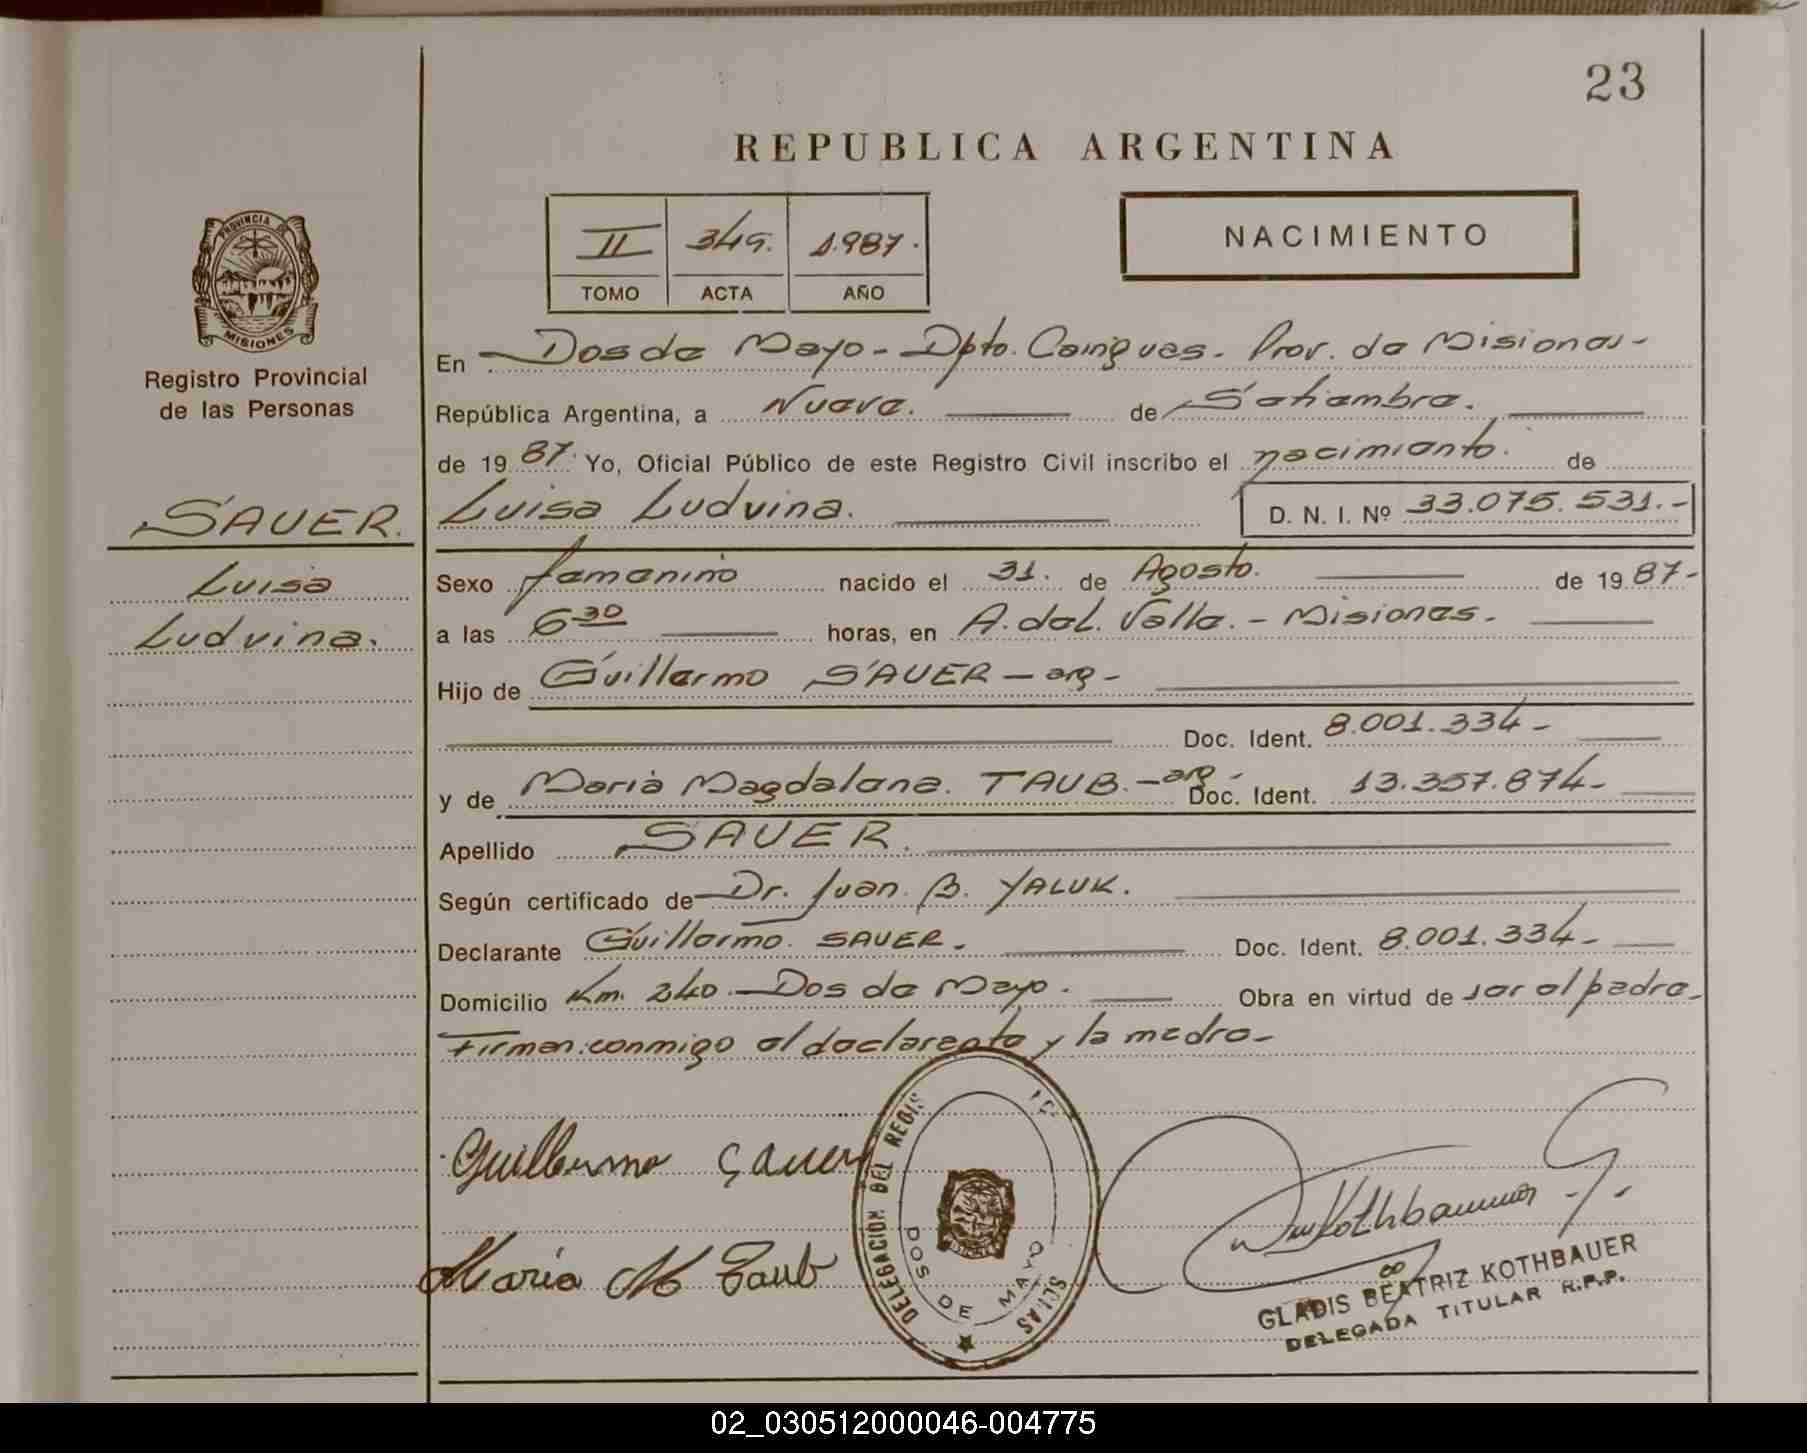 23
REPUBLICA ARGENTINA
II 349. 1.987.
TOMO ACTA AÑO
NACIMIENTO
PROVINCIA DE
MISIONES
Registro Provincial
de las Personas
En Dos de Mayo - Dpto. Cainguas - Prov. de Misiones -
República Argentina, a Nueve. de Setiembre.
de 19 87. Yo, Oficial Público de este Registro Civil inscribo el nacimiento. de
SAUER. Luisa Ludvina. D. N. I. Nº 33.075.531.-
Luisa Sexo femenino nacido el 31. de Agosto. de 19 87-
Ludvina. a las 6 30 horas, en A. del Valle. - Misiones.
Hijo de Guillermo SAUER - arg -
Doc. Ident. 8.001.334 -
y de María Magdalena. TAUB. - arg - Doc. Ident. 13.357.874 -
Apellido SAUER.
Según certificado de Dr. Juan B. YALUK.
Declarante Guillermo. SAUER. Doc. Ident. 8.001.334 -
Domicilio Km. 240 - Dos de Mayo. Obra en virtud de ser el padre -
Firman conmigo el declarante y la madre -
Guillermo Sauer
María M Taub
DELEGACION DEL REGIS
DOS DE MAYO
Kothbauer G.
GLADIS BEATRIZ KOTHBAUER
DELEGADA TITULAR R.P.P.
02_030512000046-004775